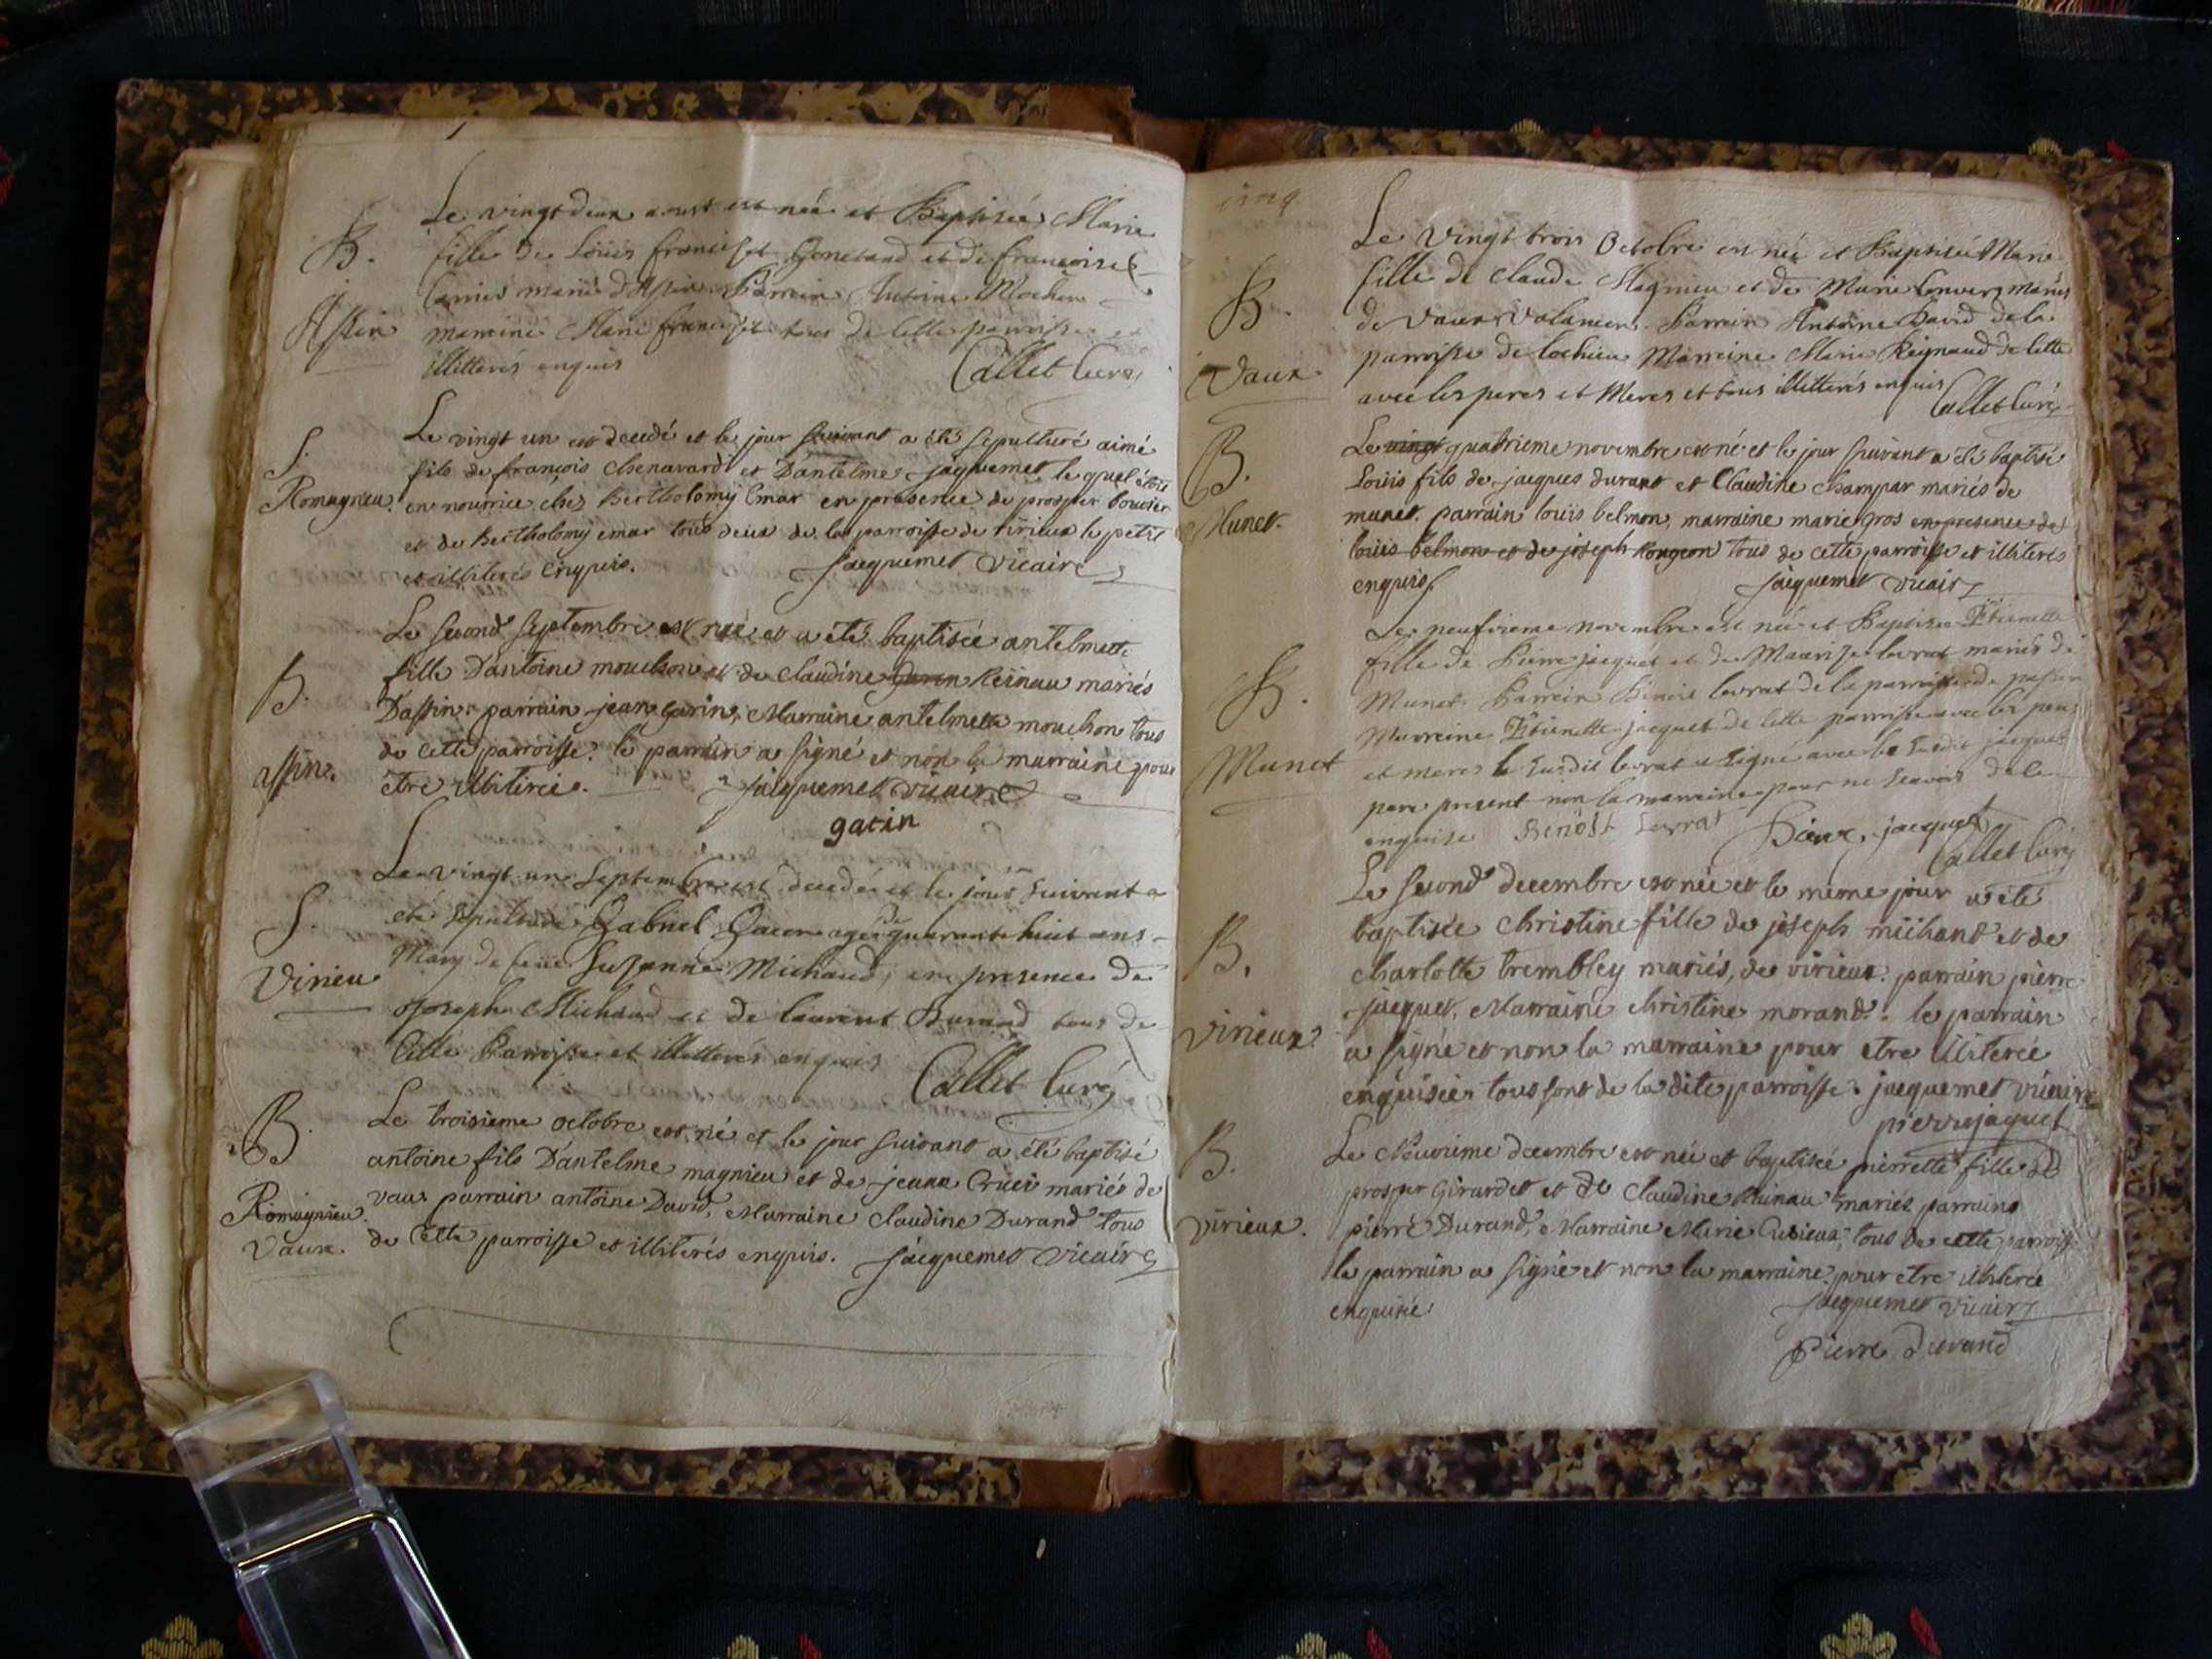 Le vingt deux aoust est née et Baptisée Marie
B. fille de Loüis francisset Gonetand et de francoise
mariés d'Assin. Parrein Antoine
Assin marreine Marie francisset tous de cette parroisse et
illitterés enquis Callet Curé
Le vingt un est decedé et le jour suivant a été sepulturé aimé
S. fils de françois chenavard et D'antelme jaquemet le quel étoit
Romagnieu. en nourrice chez Bertholomÿ Emar en présence de prosper bouvier
et de Bertholomÿ emar tous deux de la parroisse de virieux le petit
et illiterés enquis. jacquemet vicaire
Le second Septembre est née et a été baptisée antelmette
B. fille D'antoine mouchon et de claudine garin Reinau mariés
D'assin. parrain jean garin, Marraine antelmette mouchon tous
assin. de cette parroisse. le parrain a signé et non la marraine pour
être illiterée. jacquemet vicaire
garin
Le vingt un Septembre est decedé et le jour suivant a
S. eté sepulturé Gabriel agé de quarante huit ans
Virieu Mary de feüe Susanne Michaud, en presence de
Joseph Michaud et de laurent Durand tous de
Cette Parroisse et illitterés enquis
Callet Curé
B. Le troisieme octobre est né et le jour suivant a été baptisé
antoine fils D'antelme magnieu et de jeanne Cruci mariés de
Romagnieu. vaux parrain antoine David, Marraine claudine Durand tous
Vaux. de Cette parroisse et illiterés enquis. jacquemet vicaire
Le vingt trois Octobre est née et Baptisée Marie
B. fille de claude Magnieu et de Marie Convers mariés
de Vaux Valamieu. Parrein Antoine David de la
Vaux. parroisse de lochieu Marreine Marie Reynaud de cette
avec les peres et Meres et tous illitterés enquis
Callet Curé
Le vingt quatrieme novembre est né et le jour suivant a été baptisé
B. Loüis fils de jacques durand et Claudine champar mariés de
Munet. munet. parrain loüis belmon, marraine marie gros en presence de
loüis belmon et de joseph Rongeon tous de cette parroisse et illiterés
enquis. jacquemet vicaire
Le neufvieme novembre est née et Baptisée Etienette
fille de Pierre jacquet et de Maurise levrat mariés de
B. Munet. Parrein Benoit levrat de la parroisse de passin
Marreine Etienette jacquet de cette parroisse avec les peres
Munet et meres le susdit levrat a signé avec le susdit jacquet
pere present non la marreine pour ne sçavoir de ce
enquise Benoît Levrat Pierre jacquet
Callet Curé
Le second decembre est née et le même jour a été
baptisée christine fille de joseph miihaud et de
B. charlotte trembley mariés, de virieux. parrain pierre
jacquet, Marraine christine morand. le parrain
virieux. a signé et non la marraine pour etre illiterée
enquisée tous sont de la dite parroisse. jacquemet vicaire
pierre jaquet
B. Le Neuvieme decembre est née et baptisée pierrette fille de
prosper Girardet et de claudine Reinau mariés parrain
virieux. pierre Durand, Marraine Marie Cusieux, tous de cette parroisse
le parrain a signé et non la marraine pour etre illiterée
enquisée. jacquemet vicaire
Pierre durand